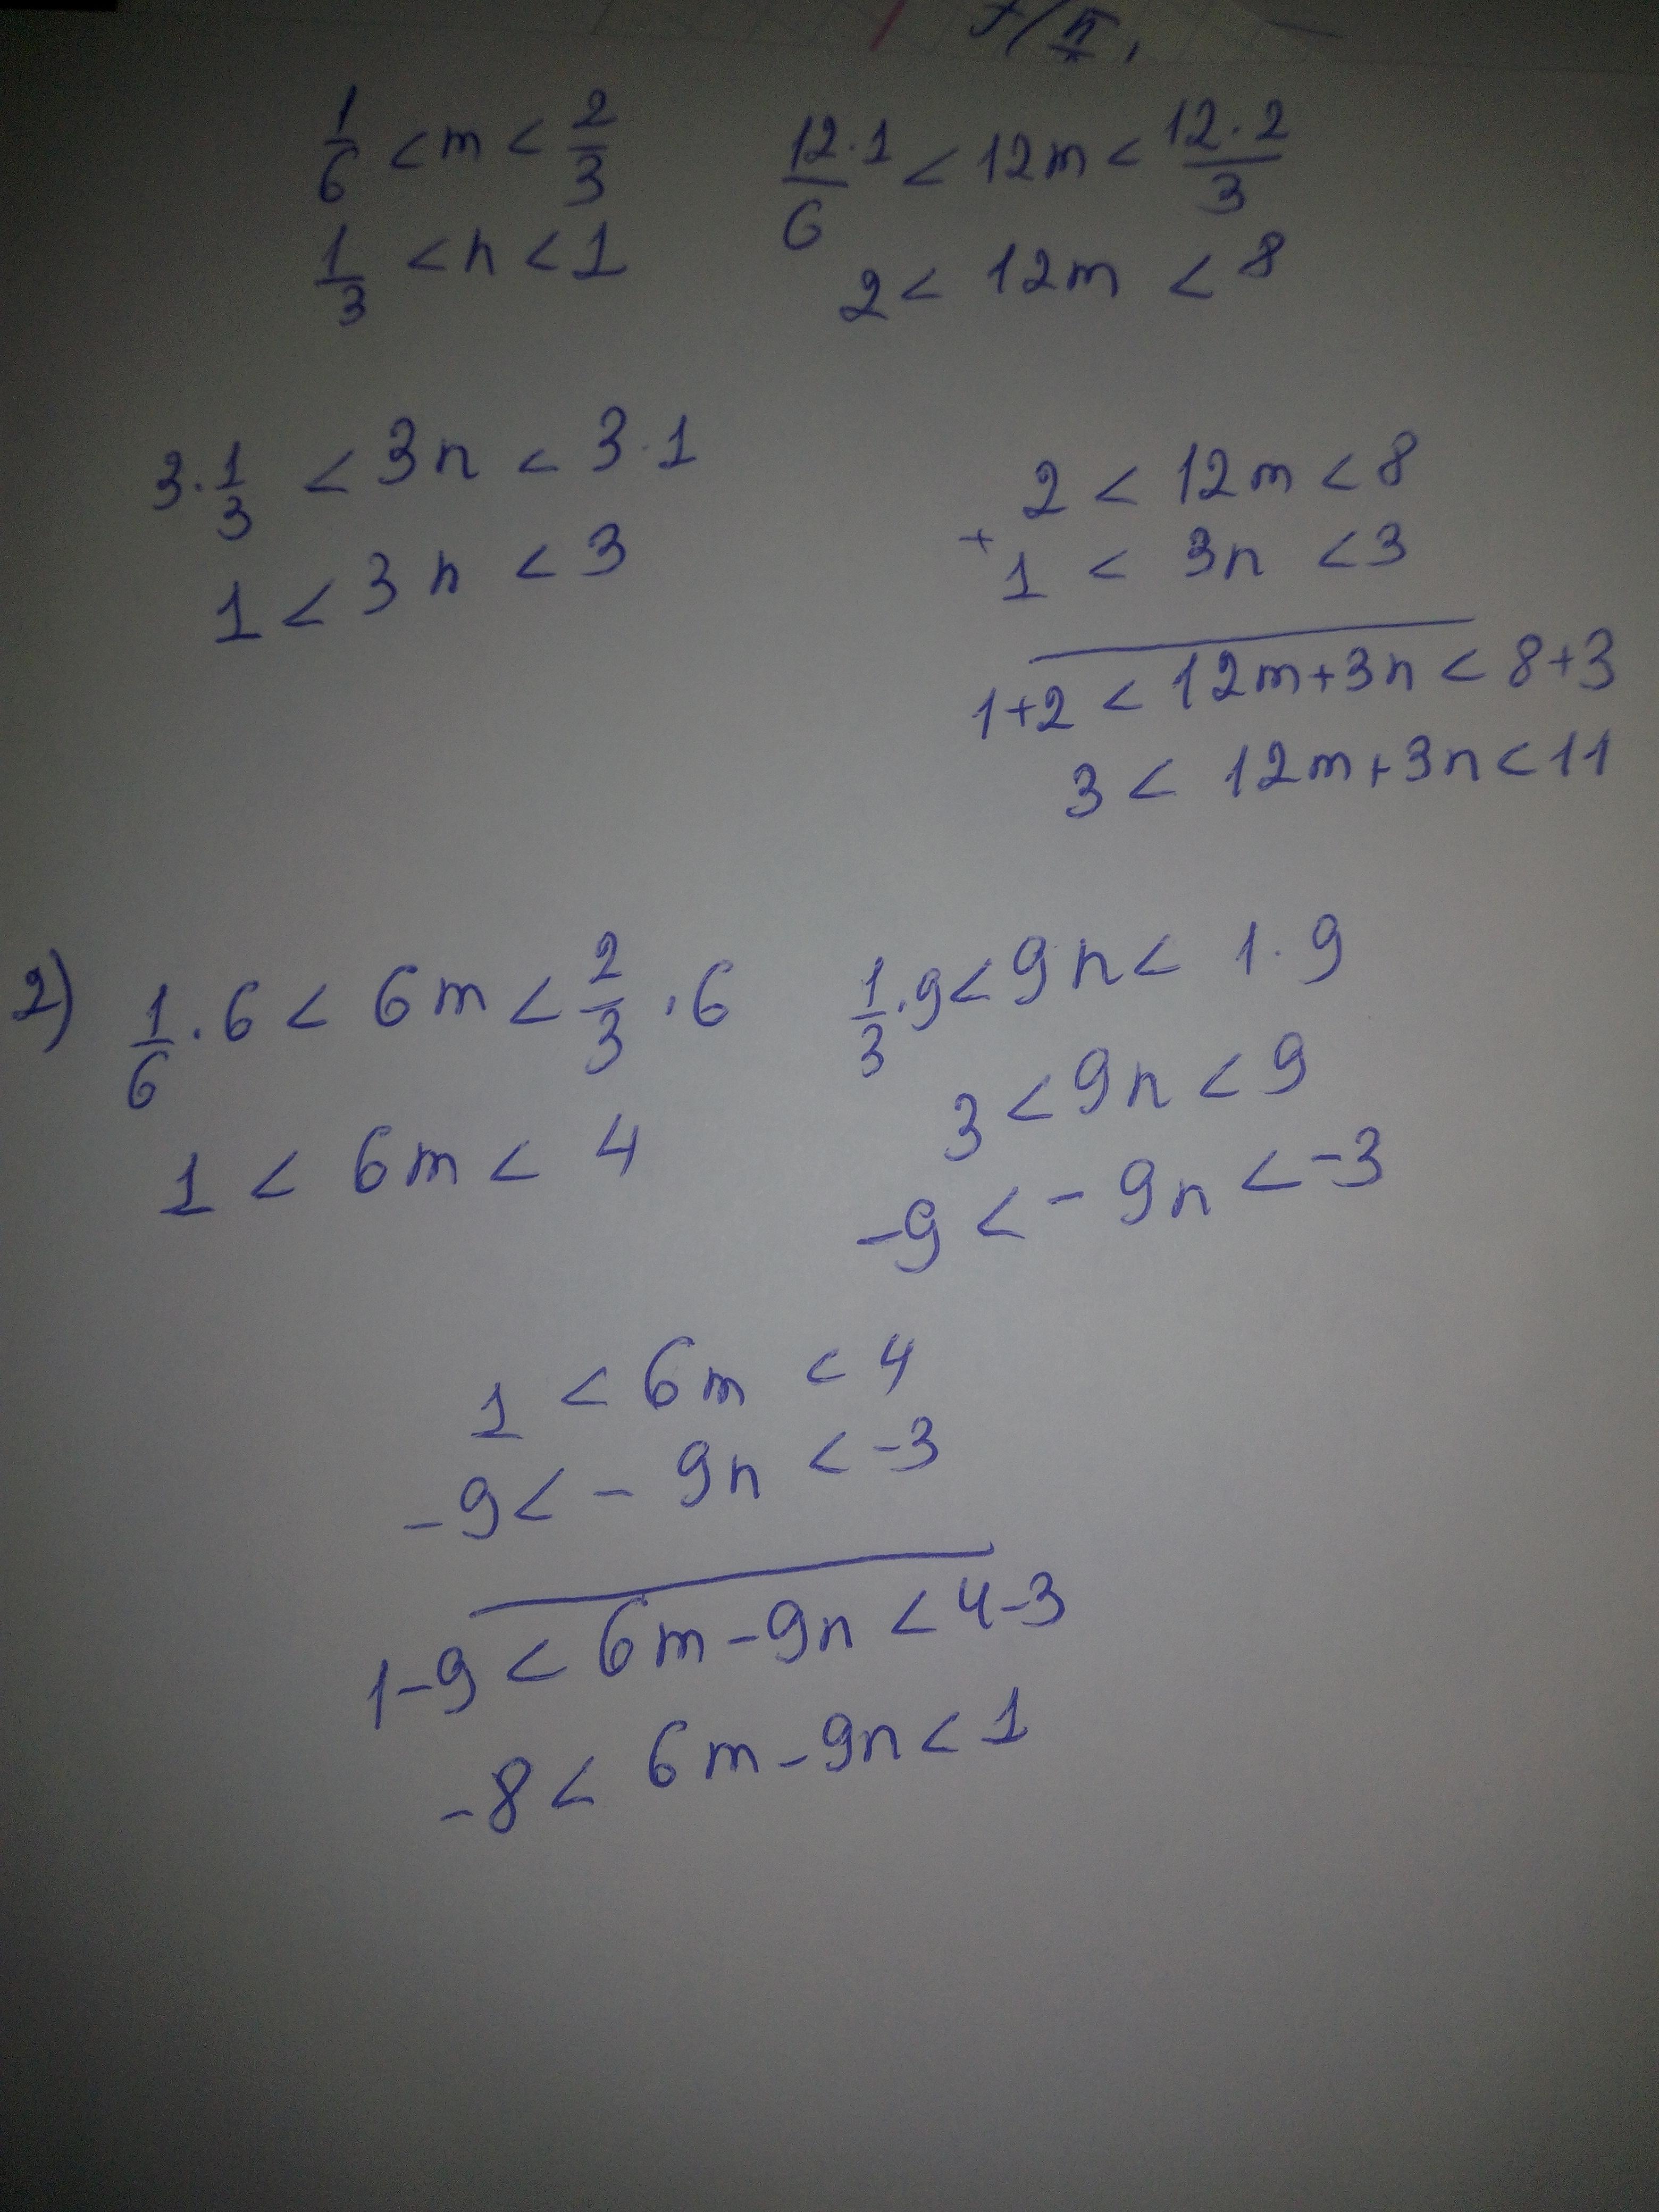 1/6 < m < 2/3
1/3 < n < 1
12·1/6 < 12m < 12·2/3
2 < 12m < 8
3·1/3 < 3n < 3·1
1 < 3n < 3
2 < 12m < 8
+
1 < 3n < 3
1+2 < 12m+3n < 8+3
3 < 12m+3n < 11
2) 1/6·6 < 6m < 2/3·6
1 < 6m < 4
1/3·9 < 9n < 1·9
3 < 9n < 9
-9 < -9n < -3
1 < 6m < 4
-9 < -9n < -3
1-9 < 6m-9n < 4-3
-8 < 6m-9n < 1